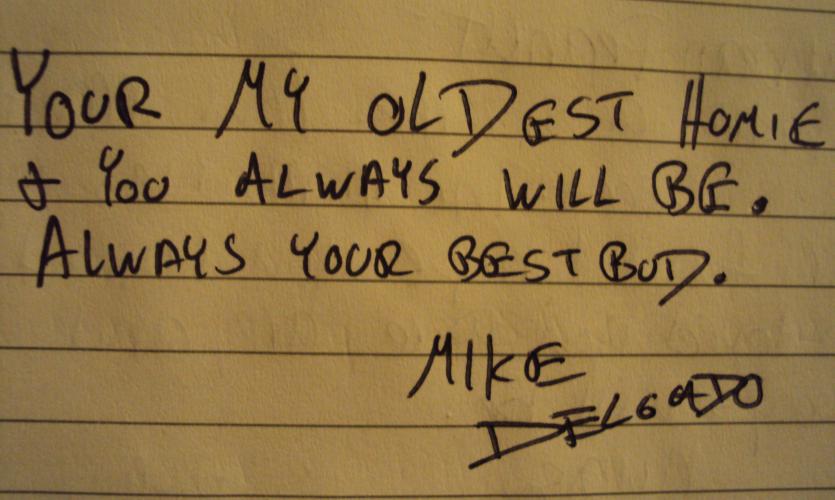 YOUR MY OLDEST HOMIE
& YOU ALWAYS WILL BE.
ALWAYS YOUR BEST BUD.
MIKE
DELGADO